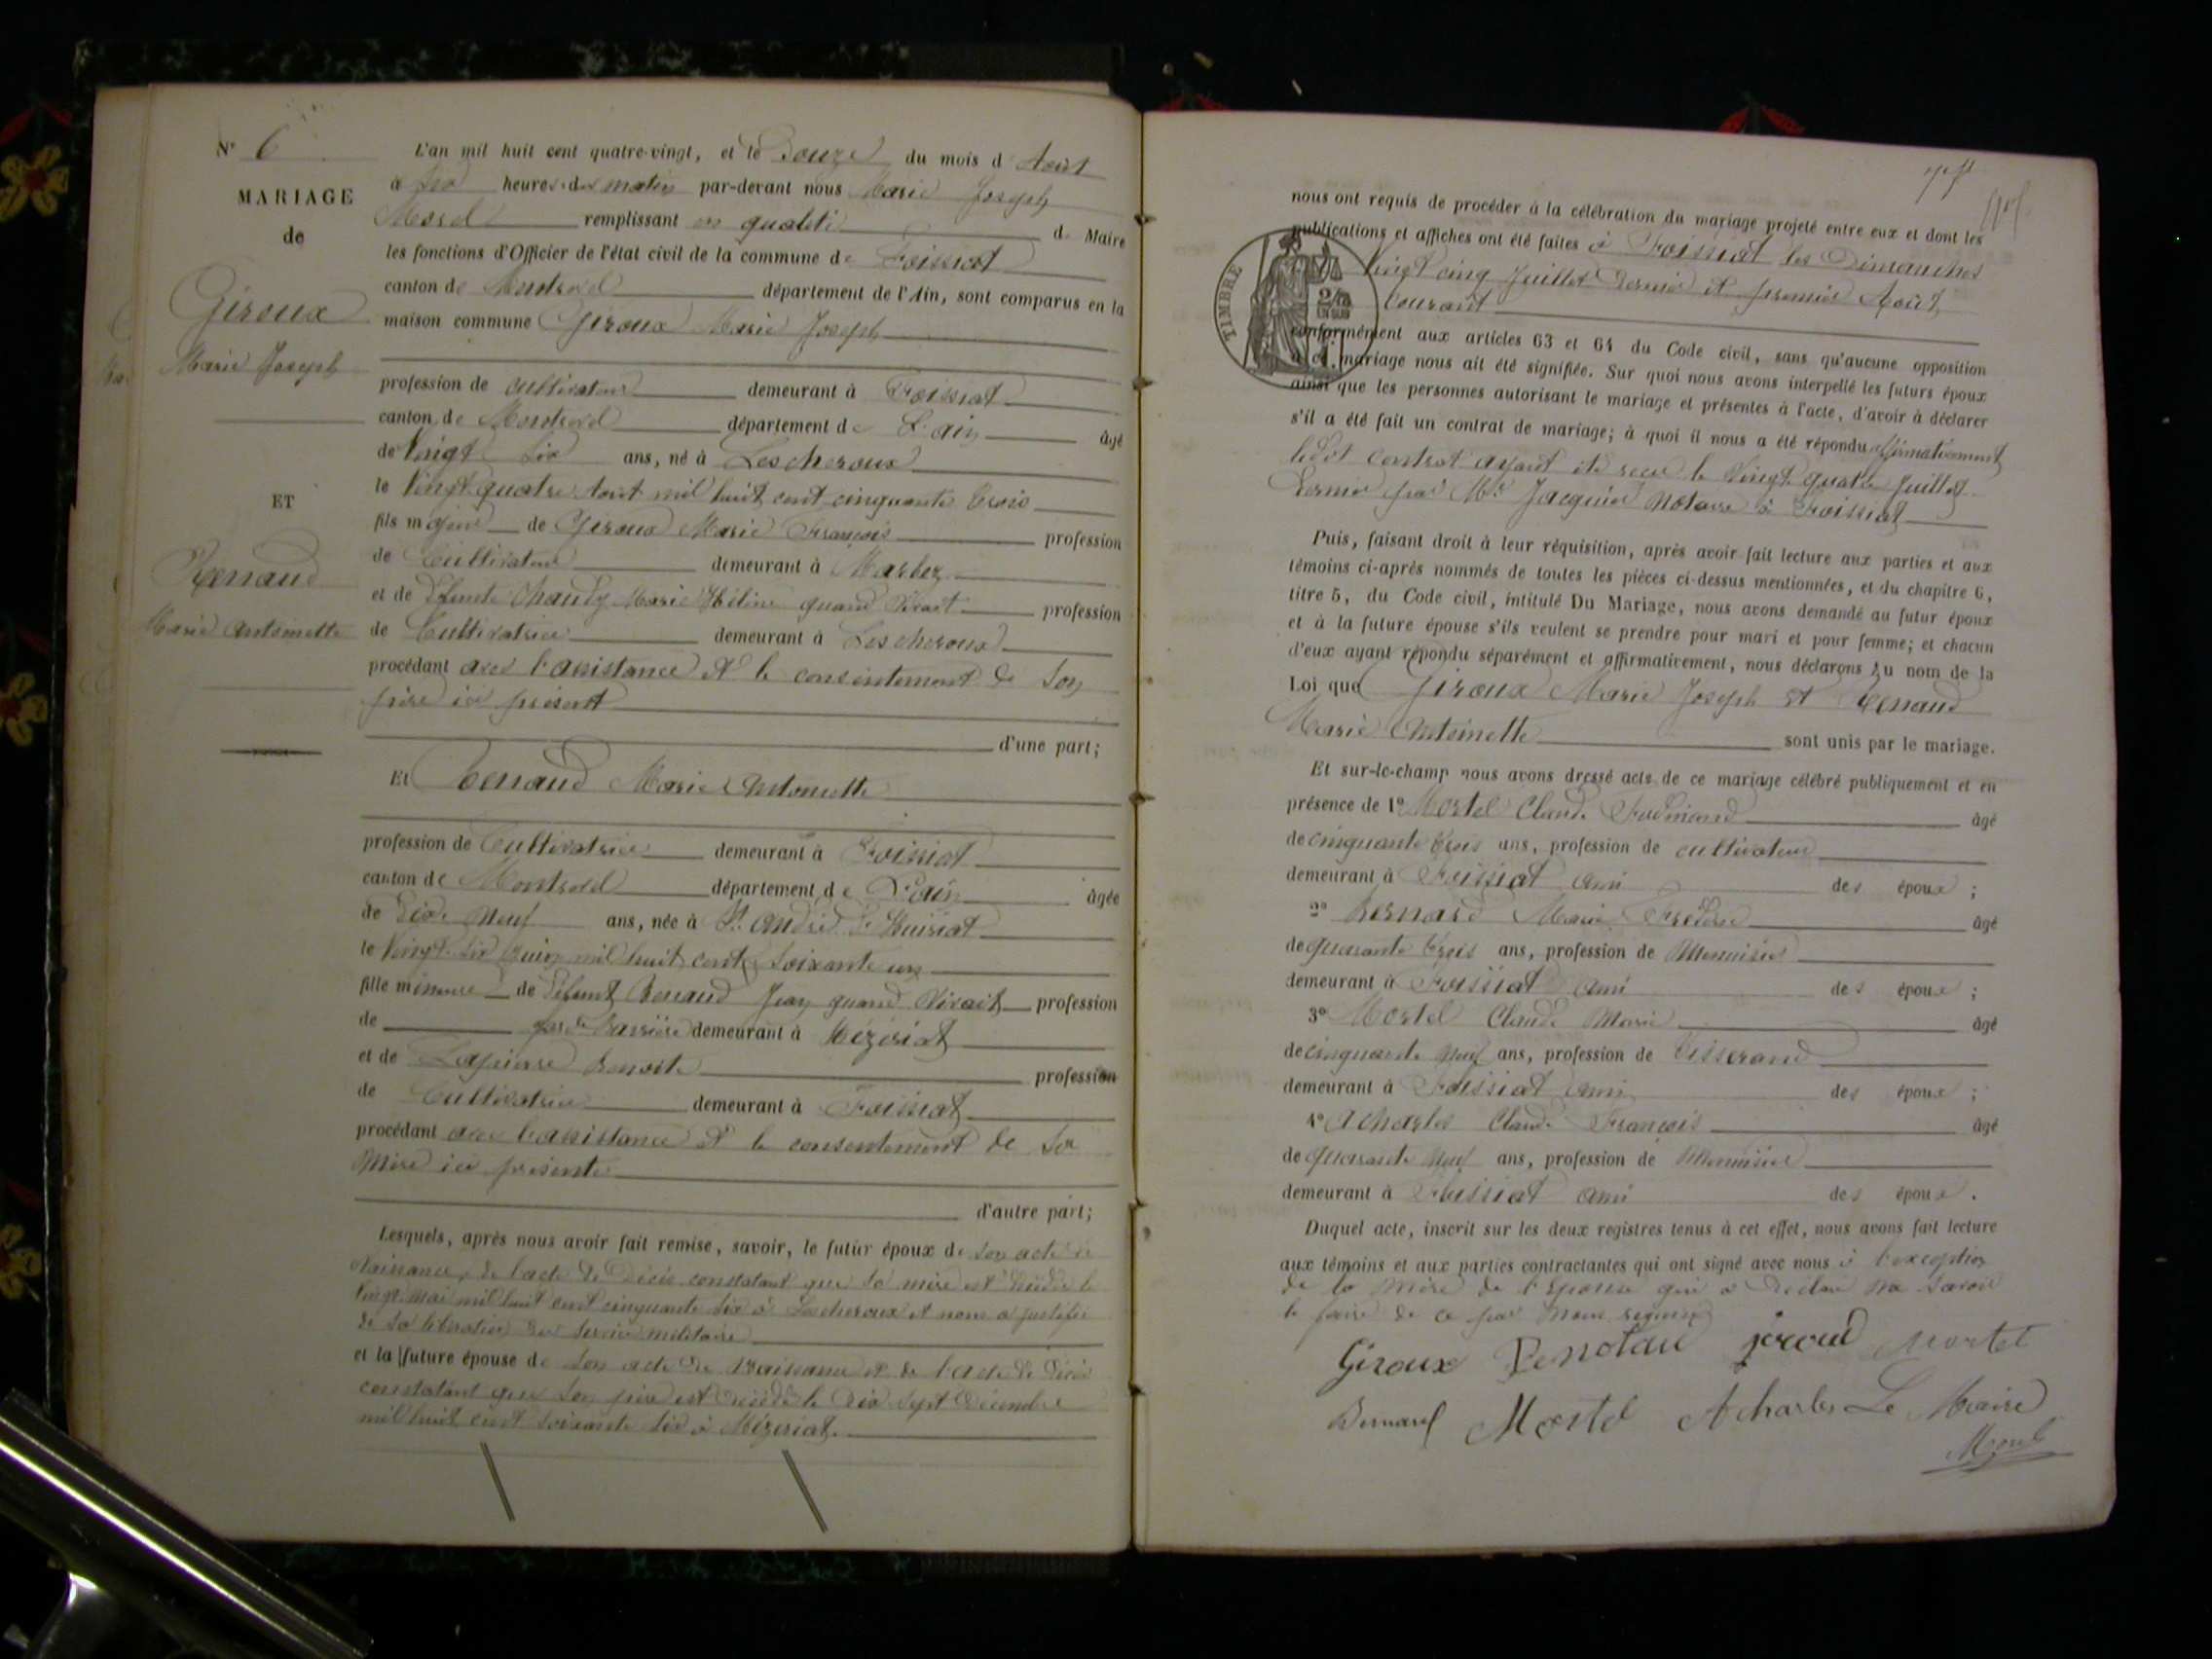 N° 6
MARIAGE
de
Giroux
Marie Joseph
ET
Renaud
Marie Antoinette
L'an mil huit cent quatre-vingt, et le Douze du mois d'Août
à Six heures du matin par-devant nous Marie Joseph
Morel remplissant en qualité de Maire
les fonctions d'Officier de l'état civil de la commune de Foissiat
canton de Montrevel département de l'Ain, sont comparus en la
maison commune Giroux Marie Joseph
profession de cultivateur demeurant à Foissiat
canton de Montrevel département de L'ain âgé
de Vingt Six ans, né à Lescheroux
le Vingt quatre Août mil huit cent cinquante trois
fils majeur de Giroux Marie François profession
de Cultivateur demeurant à Marboz
et de Défunte Chaudy Marie Hélène quand Vivait profession
de Cultivatrice demeurant à Lescheroux
procédant avec l'assistance et le consentement de Son
père ici présent
d'une part;
Et Renaud Marie Antoinette
profession de Cultivatrice demeurant à Foissiat
canton de Montrevel département de L'ain âgée
de Dix Neuf ans, née à St. André d'Huiriat
le Vingt Six Juin mil huit cent Soixante un
fille mineure de Défunt Renaud Jean quand Vivait profession
de garde barrière demeurant à Mézériat
et de Lapierre Benoite profession
de Cultivatrice demeurant à Foissiat
procédant avec l'assistance et le consentement de Sa
Mère ici présente
d'autre part;
Lesquels, après nous avoir fait remise, savoir, le futur époux de Son acte de
Naissance, de l'acte de Décès constatant que Sa mère est Décédée le
Vingt Mai mil huit cent cinquante Six à Lescheroux et nous a justifié
de Sa libération du Service militaire
et la future épouse de Son acte de Naissance et de l'acte de Décès
constatant que Son père est Décédé le Dix Sept Décembre
mil huit cent soixante Six à Mézériat.
nous ont requis de procéder à la célébration du mariage projeté entre eux et dont les
publications et affiches ont été faites à Foissiat les Dimanches
Vingt cinq Juillet Dernier et premier Août
Courant
TIMBRE
conformément aux articles 63 et 64 du Code civil, sans qu'aucune opposition
à ce mariage nous ait été signifiée. Sur quoi nous avons interpellé les futurs époux
ainsi que les personnes autorisant le mariage et présentes à l'acte, d'avoir à déclarer
s'il a été fait un contrat de mariage; à quoi il nous a été répondu affirmativement
ledit contrat ayant été reçu le Vingt quatre Juillet
Dernier par Me Jacquier Notaire à Foissiat
Puis, faisant droit à leur réquisition, après avoir fait lecture aux parties et aux
témoins ci-après nommés de toutes les pièces ci-dessus mentionnées, et du chapitre 6,
titre 5, du Code civil, intitulé Du Mariage, nous avons demandé au futur époux
et à la future épouse s'ils veulent se prendre pour mari et pour femme; et chacun
d'eux ayant répondu séparément et affirmativement, nous déclarons au nom de la
Loi que Giroux Marie Joseph et Renaud
Marie Antoinette sont unis par le mariage.
Et sur-le-champ nous avons dressé acte de ce mariage célébré publiquement et en
présence de 1° Mortel Claude Ferdinand âgé
de cinquante trois ans, profession de cultivateur
demeurant à Foissiat ami des époux ;
2° Bernard Marie Frédéric âgé
de quarante trois ans, profession de Menuisier
demeurant à Foissiat ami des époux ;
3° Mortel Claude Marie âgé
de cinquante Neuf ans, profession de Tisserand
demeurant à Foissiat ami des époux ;
4° Acharles Claude François âgé
de quarante Neuf ans, profession de Menuisier
demeurant à Foissiat ami des époux .
Duquel acte, inscrit sur les deux registres tenus à cet effet, nous avons fait lecture
aux témoins et aux parties contractantes qui ont signé avec nous à l'exception
de la Mère de l'Epouse qui a Déclaré ne Savoir
le faire de ce par Nous requise
Giroux giroud mortel
Bernard Mortel Acharles Le Maire
Morel